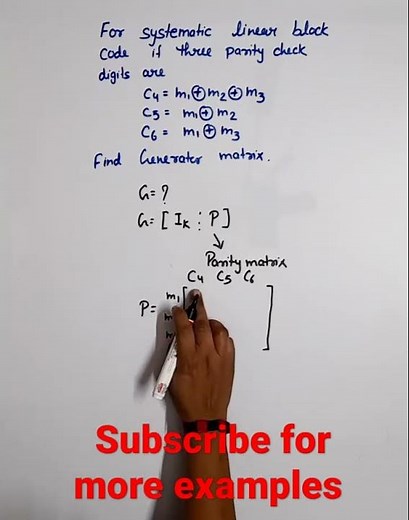 For systematic linear block
code if three parity check
digits are
C4 = m1⊕m2⊕m3
C5 = m1⊕m2
C6 = m1⊕m3
Find Generator matrix.
G= ?
G= [ Ik ⋮ P ]
Parity matrix
C4 C5 C6
P= m1 [ ]
m
m
Subscribe for
more examples